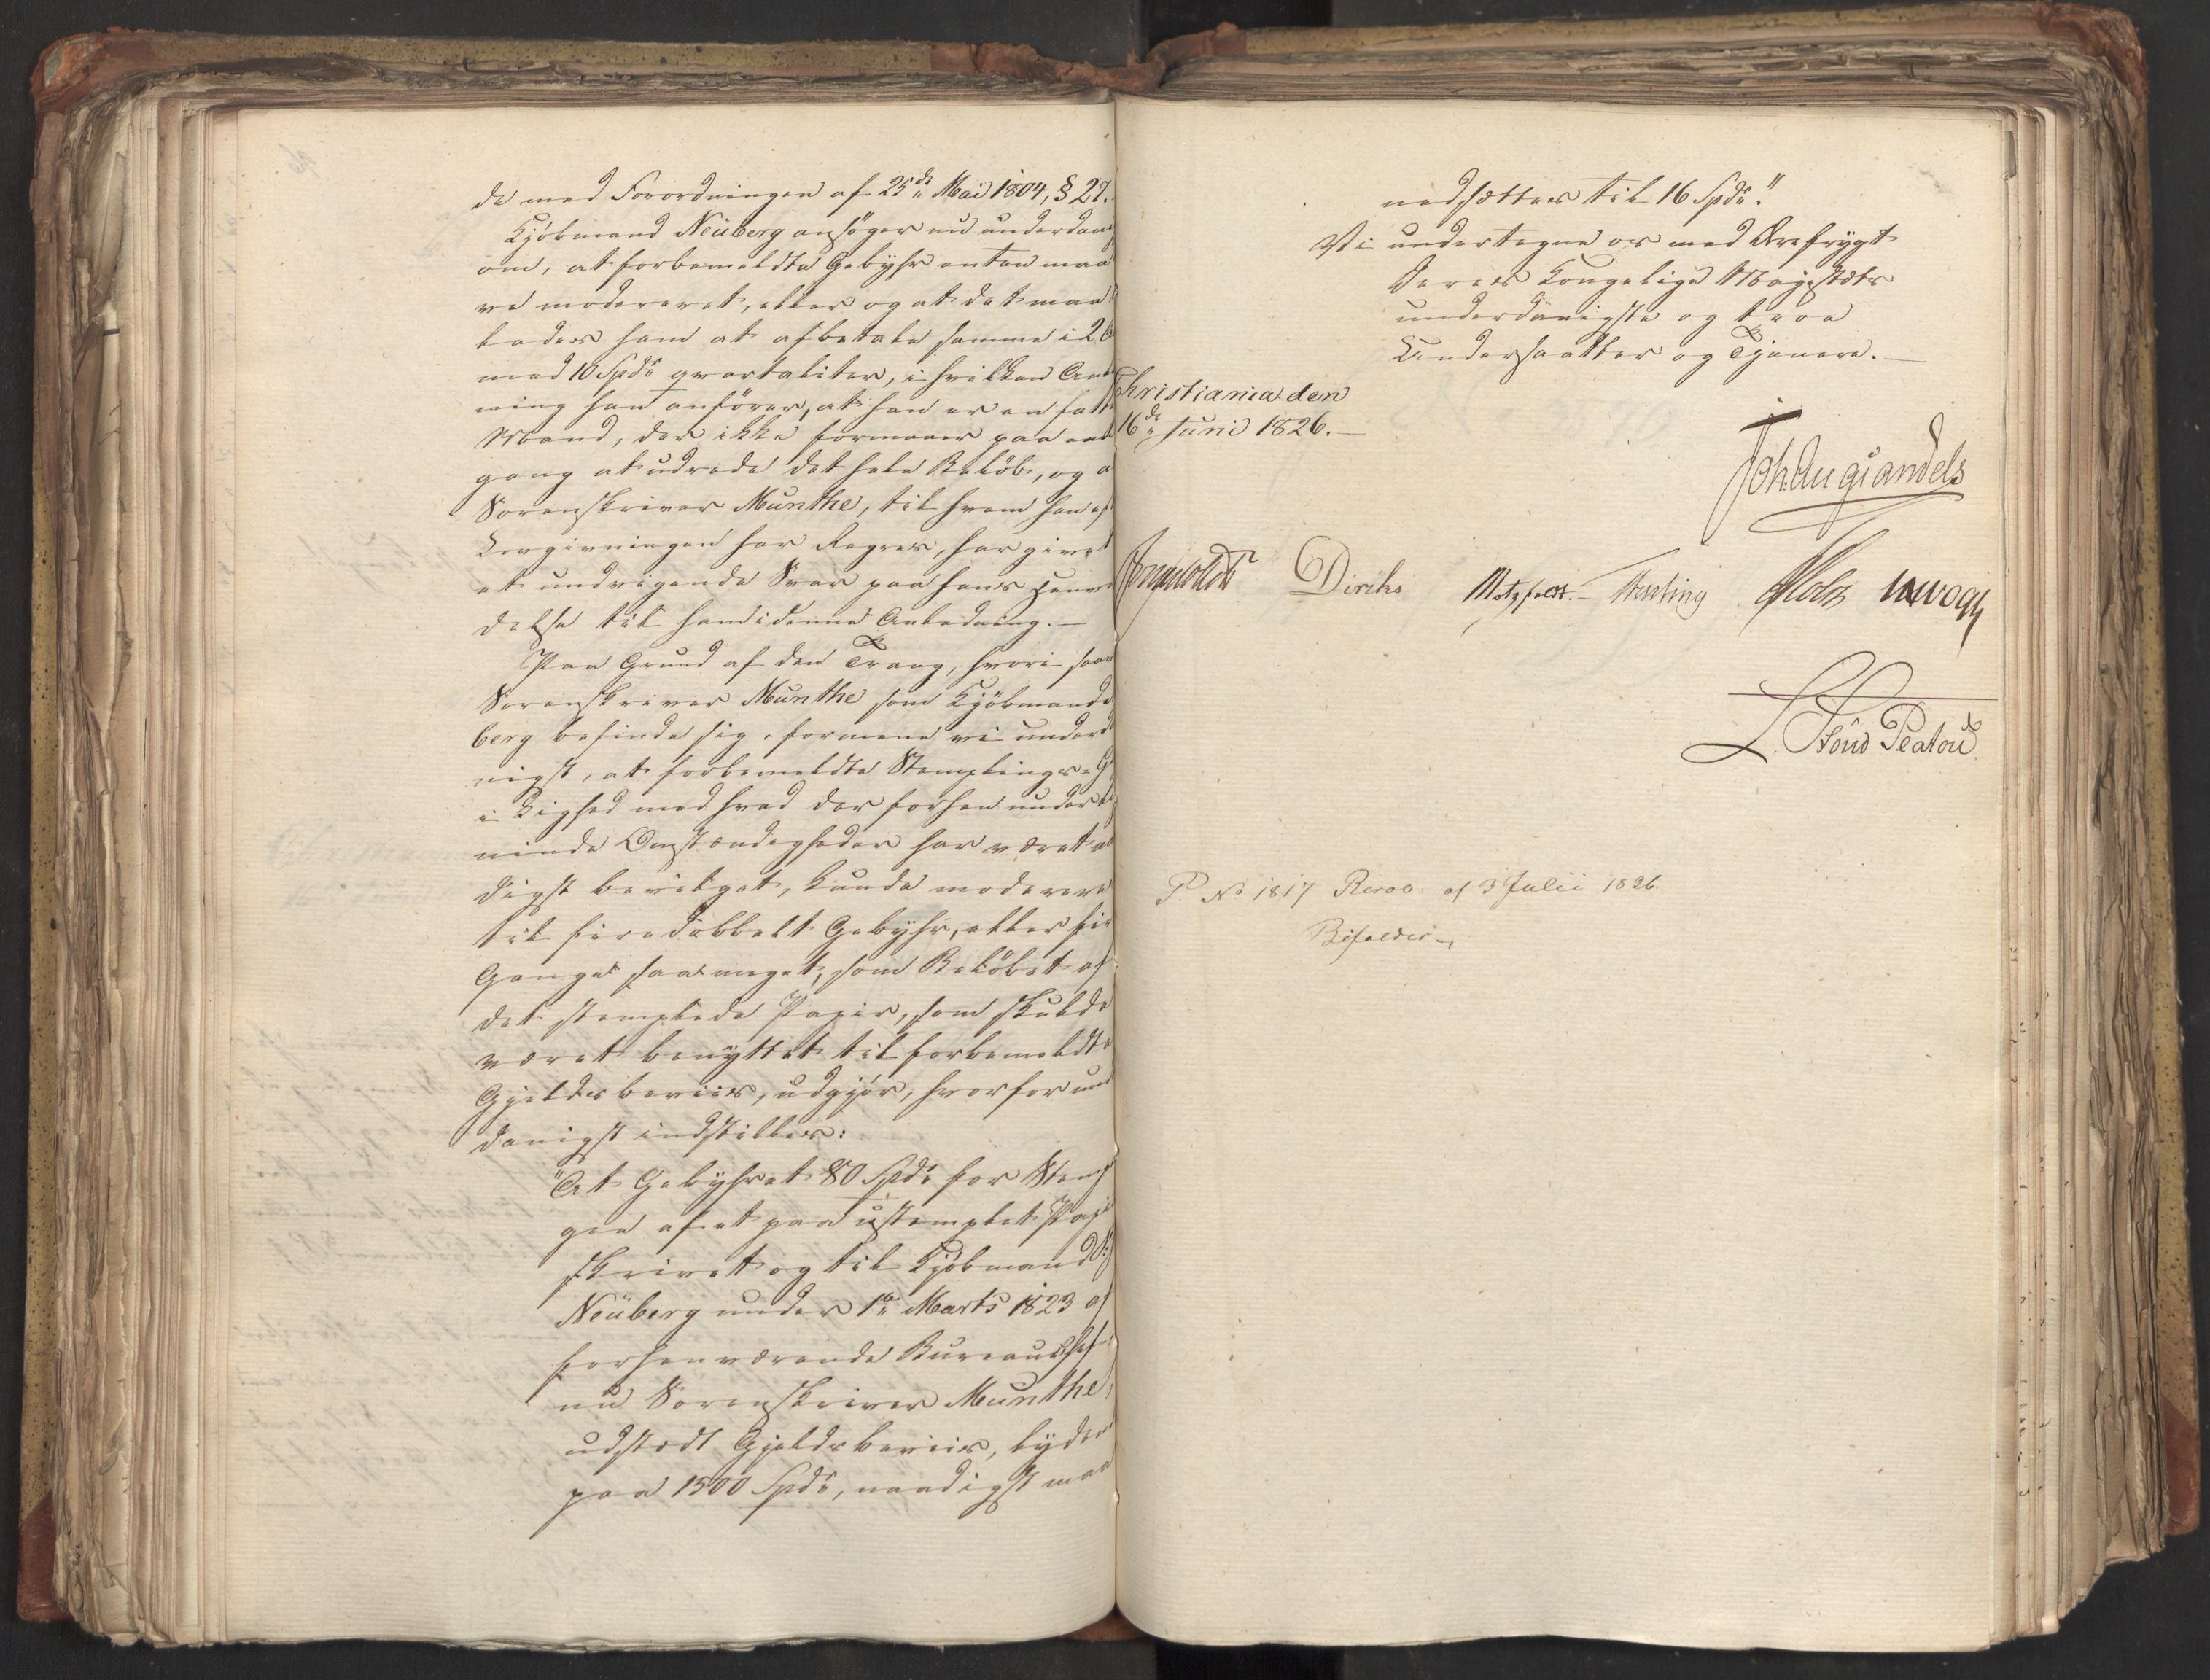 de med Forordningen af 25de Mai 1804, § 27.
Kjöbmand Neuberg ansöger nu underdan
om, at forbemeldte Gebyhr enten maa
ve modereret, eller og at det maa
lades ham at afbetale samme i 2
med 10 Spd. qvartaliter, i hvilken An
ning han anförer, at han er en fatt
Mand, der ikke formaaer paa een
gang at udrede det hele Beløb, og a
Sorenskriver Munthe, til hvem han ef
Lovgivningen har Regres, har givet
et undvigende Svar paa hans Henven
delse til ham i denne Anledning.—
Paa Grund af den Trang, hvori saav
Sorenskriver Munthe som Kjöbmand
berg befinde sig, formene vi underd
nigst, at forbemeldte Stemplings-G
i Lighed med hvad der forhen under li
nende Omstændigheder har været n
digst bevilget, kunde modereres
til firedobbelt Gebyhr, eller fir
Gange saameget, som Beløbet af
det stemplede Papir, som skulde
været benyttet til forbemeldte
Gjeldsbeviis, udgjör, hvorfor und
danigst indstilles:
"At Gebyhret 80 Spd. for Stemp
gen af et paa ustemplet Papi
skrevet og til Kjöbmand
Neuberg under 1ste Marts 1823 af
forhenværende Bureauchef
nu Sorenskriver Munthe,
udstædt Gjeldsbeviis, lyden
paa 1500 Spd., naadigst maa
nedsættes til 16 Spd."
Vi undertegne os med Ærefrygt
Deres Kongelige Majestæts
underdanigste og troe
Undersaatter og Tjenere.—
Christiania den
16de Juni 1826.—
Joh. Aug. Sandels
Diriks Motzfeldt.— Treschow Holst
L. Stoud Platou
P. No 1817 Resol. af 3 Julii 1826
Bifaldes.